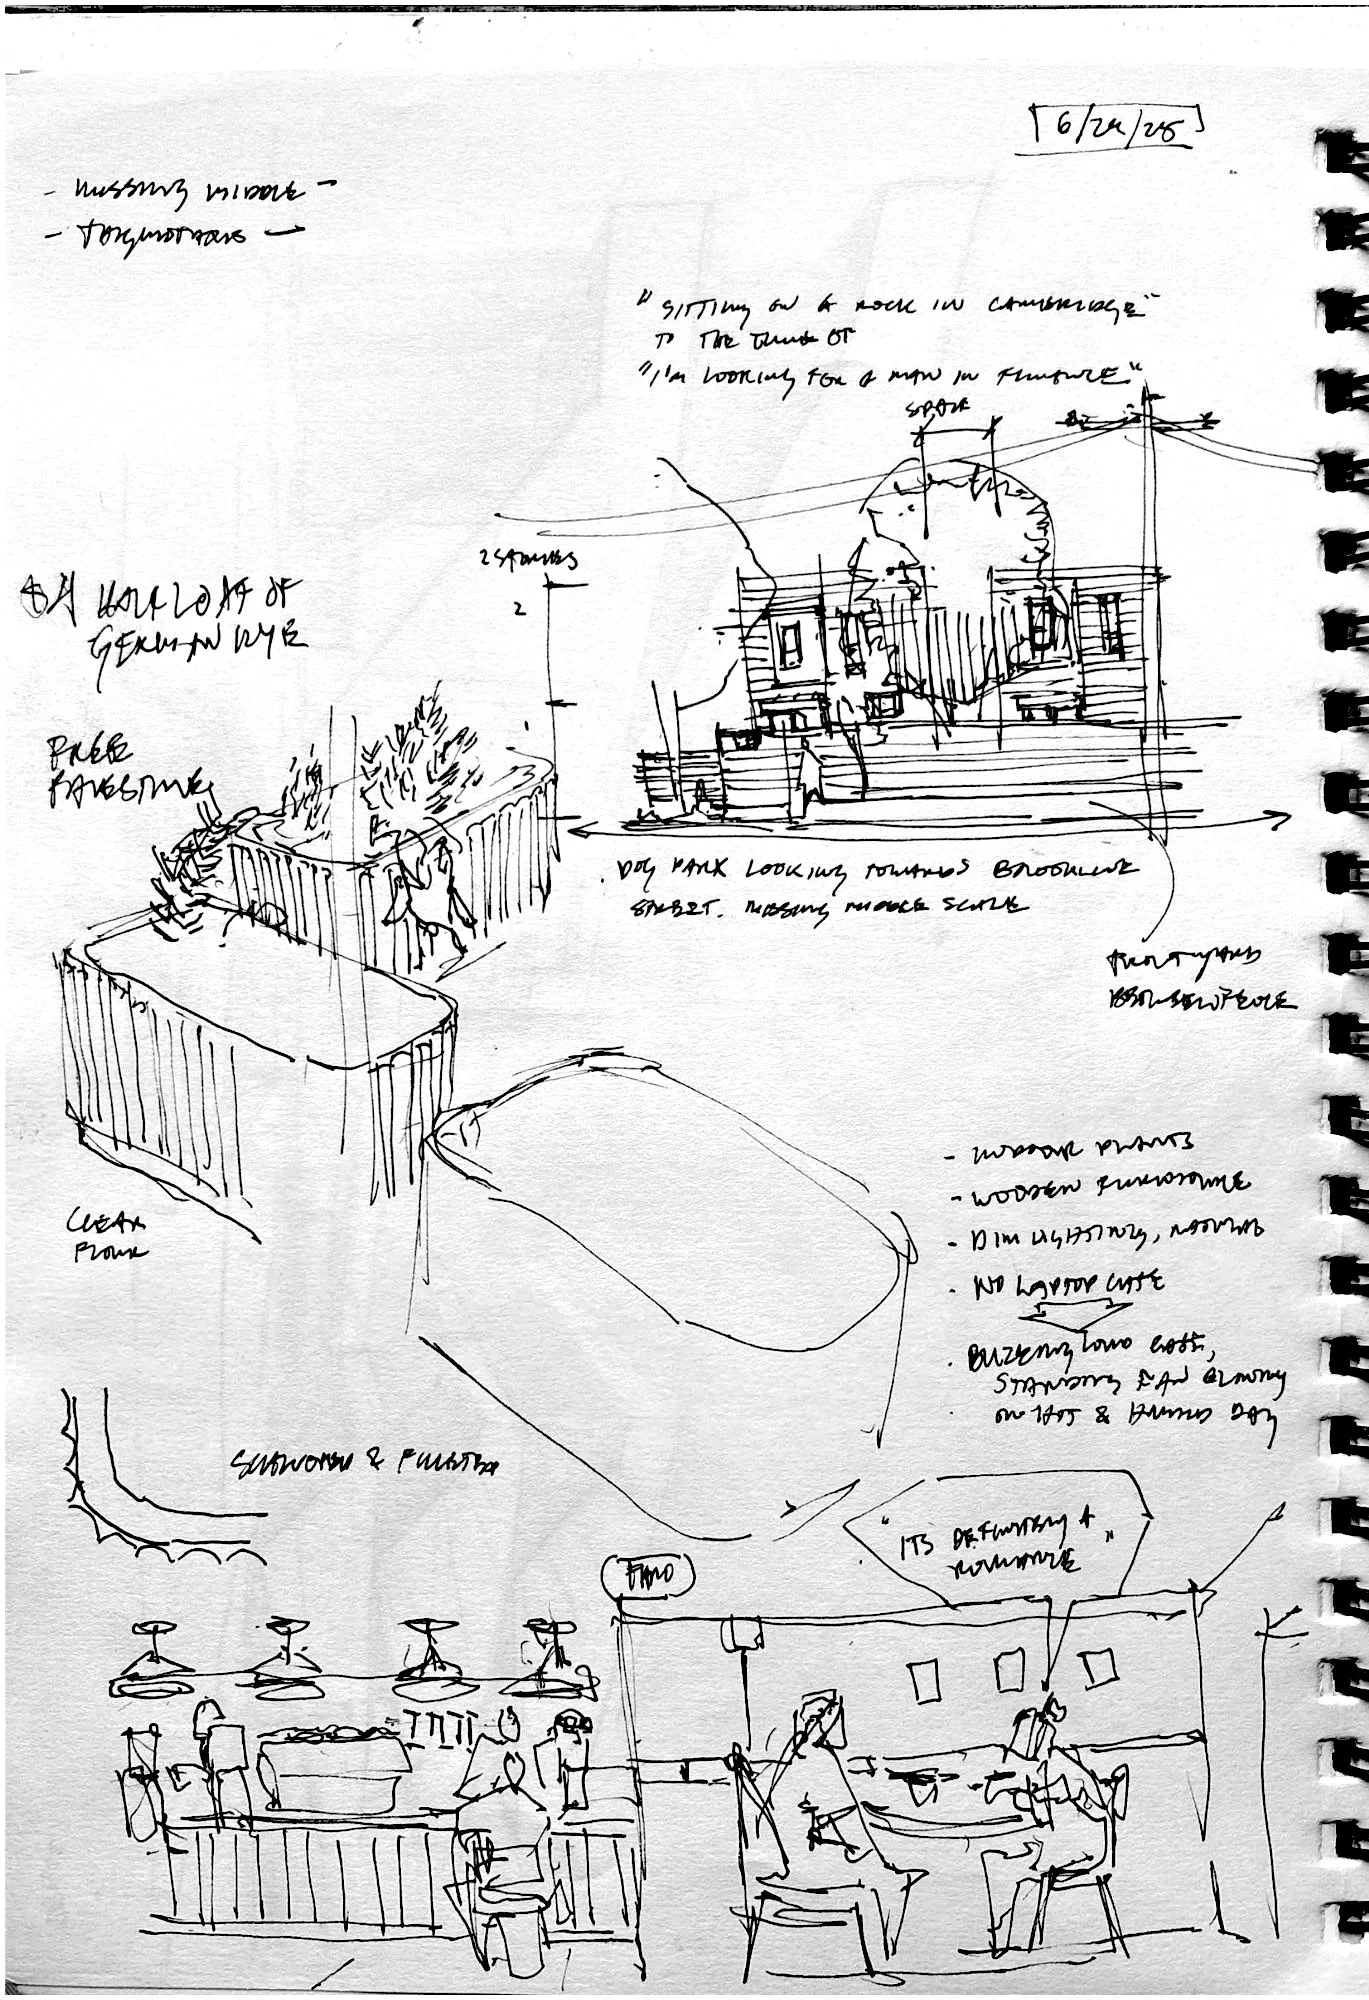 [6/24/25]
- MISSING MIDDLE -
"SITTING ON A ROCK IN CAMBRIDGE"
TO THE TUNE OF
"I'M LOOKING FOR A MAN IN FINANCE"
SPACE
2 STORIES
2
A HALF LOAF OF
GERMAN RYE
FREE
PALESTINE
1
DOG PARK LOOKING TOWARDS BROOKLINE
STREET. MISSING MIDDLE SCALE
FRONT YARD
- INDOOR PLANTS
- WOODEN FURNITURE
- DIM LIGHTING, NATURAL
- NO LAPTOP CAFE
CLEAR
FLOUR
- BUZZING LOUD CAFE,
STANDING FAN BLOWING
ON HOT & HUMID DAY
SCALLOPED & FLUTED
"ITS DEFINITELY A
ROMANCE"